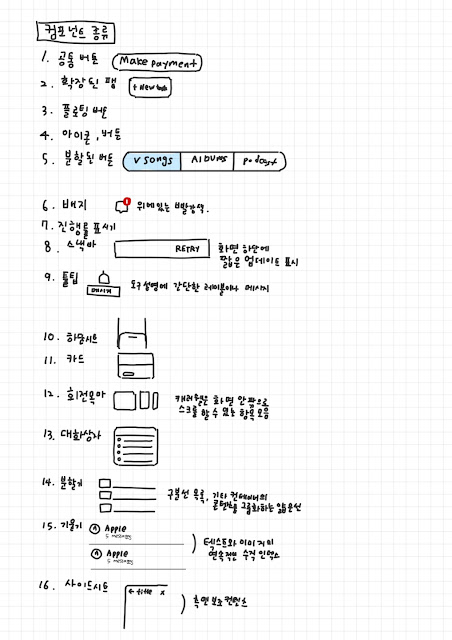 컴포넌트 종류
1. 공통 버튼 Make payment
2. 확장된 팹 + New task
3. 플로팅 버튼
4. 아이콘, 버튼
5. 분할된 버튼 v songs Albums podcast
6. 배지 위에있는 빨강색.
7. 진행률 표시기
8. 스낵바 RETRY 화면 하단에
짧은 업데이트 표시
9. 툴팁 메시지 도구설명에 간단한 레이블이나 메시지
10. 하단시트
11. 카드
12. 회전목마 캐러셀은 화면 안팎으로
스크롤 할 수 있는 항목 모음
13. 대화상자
14. 분할기 구분선 목록, 기타 컨테이너의
콘텐츠를 그룹화하는 얇은선
15. A Apple
5 messages
텍스트와 이미지의
연속적인 수직 인덱스
A Apple
5 messages
16. 사이드시트 ← title x 측면 보조 컨텐츠